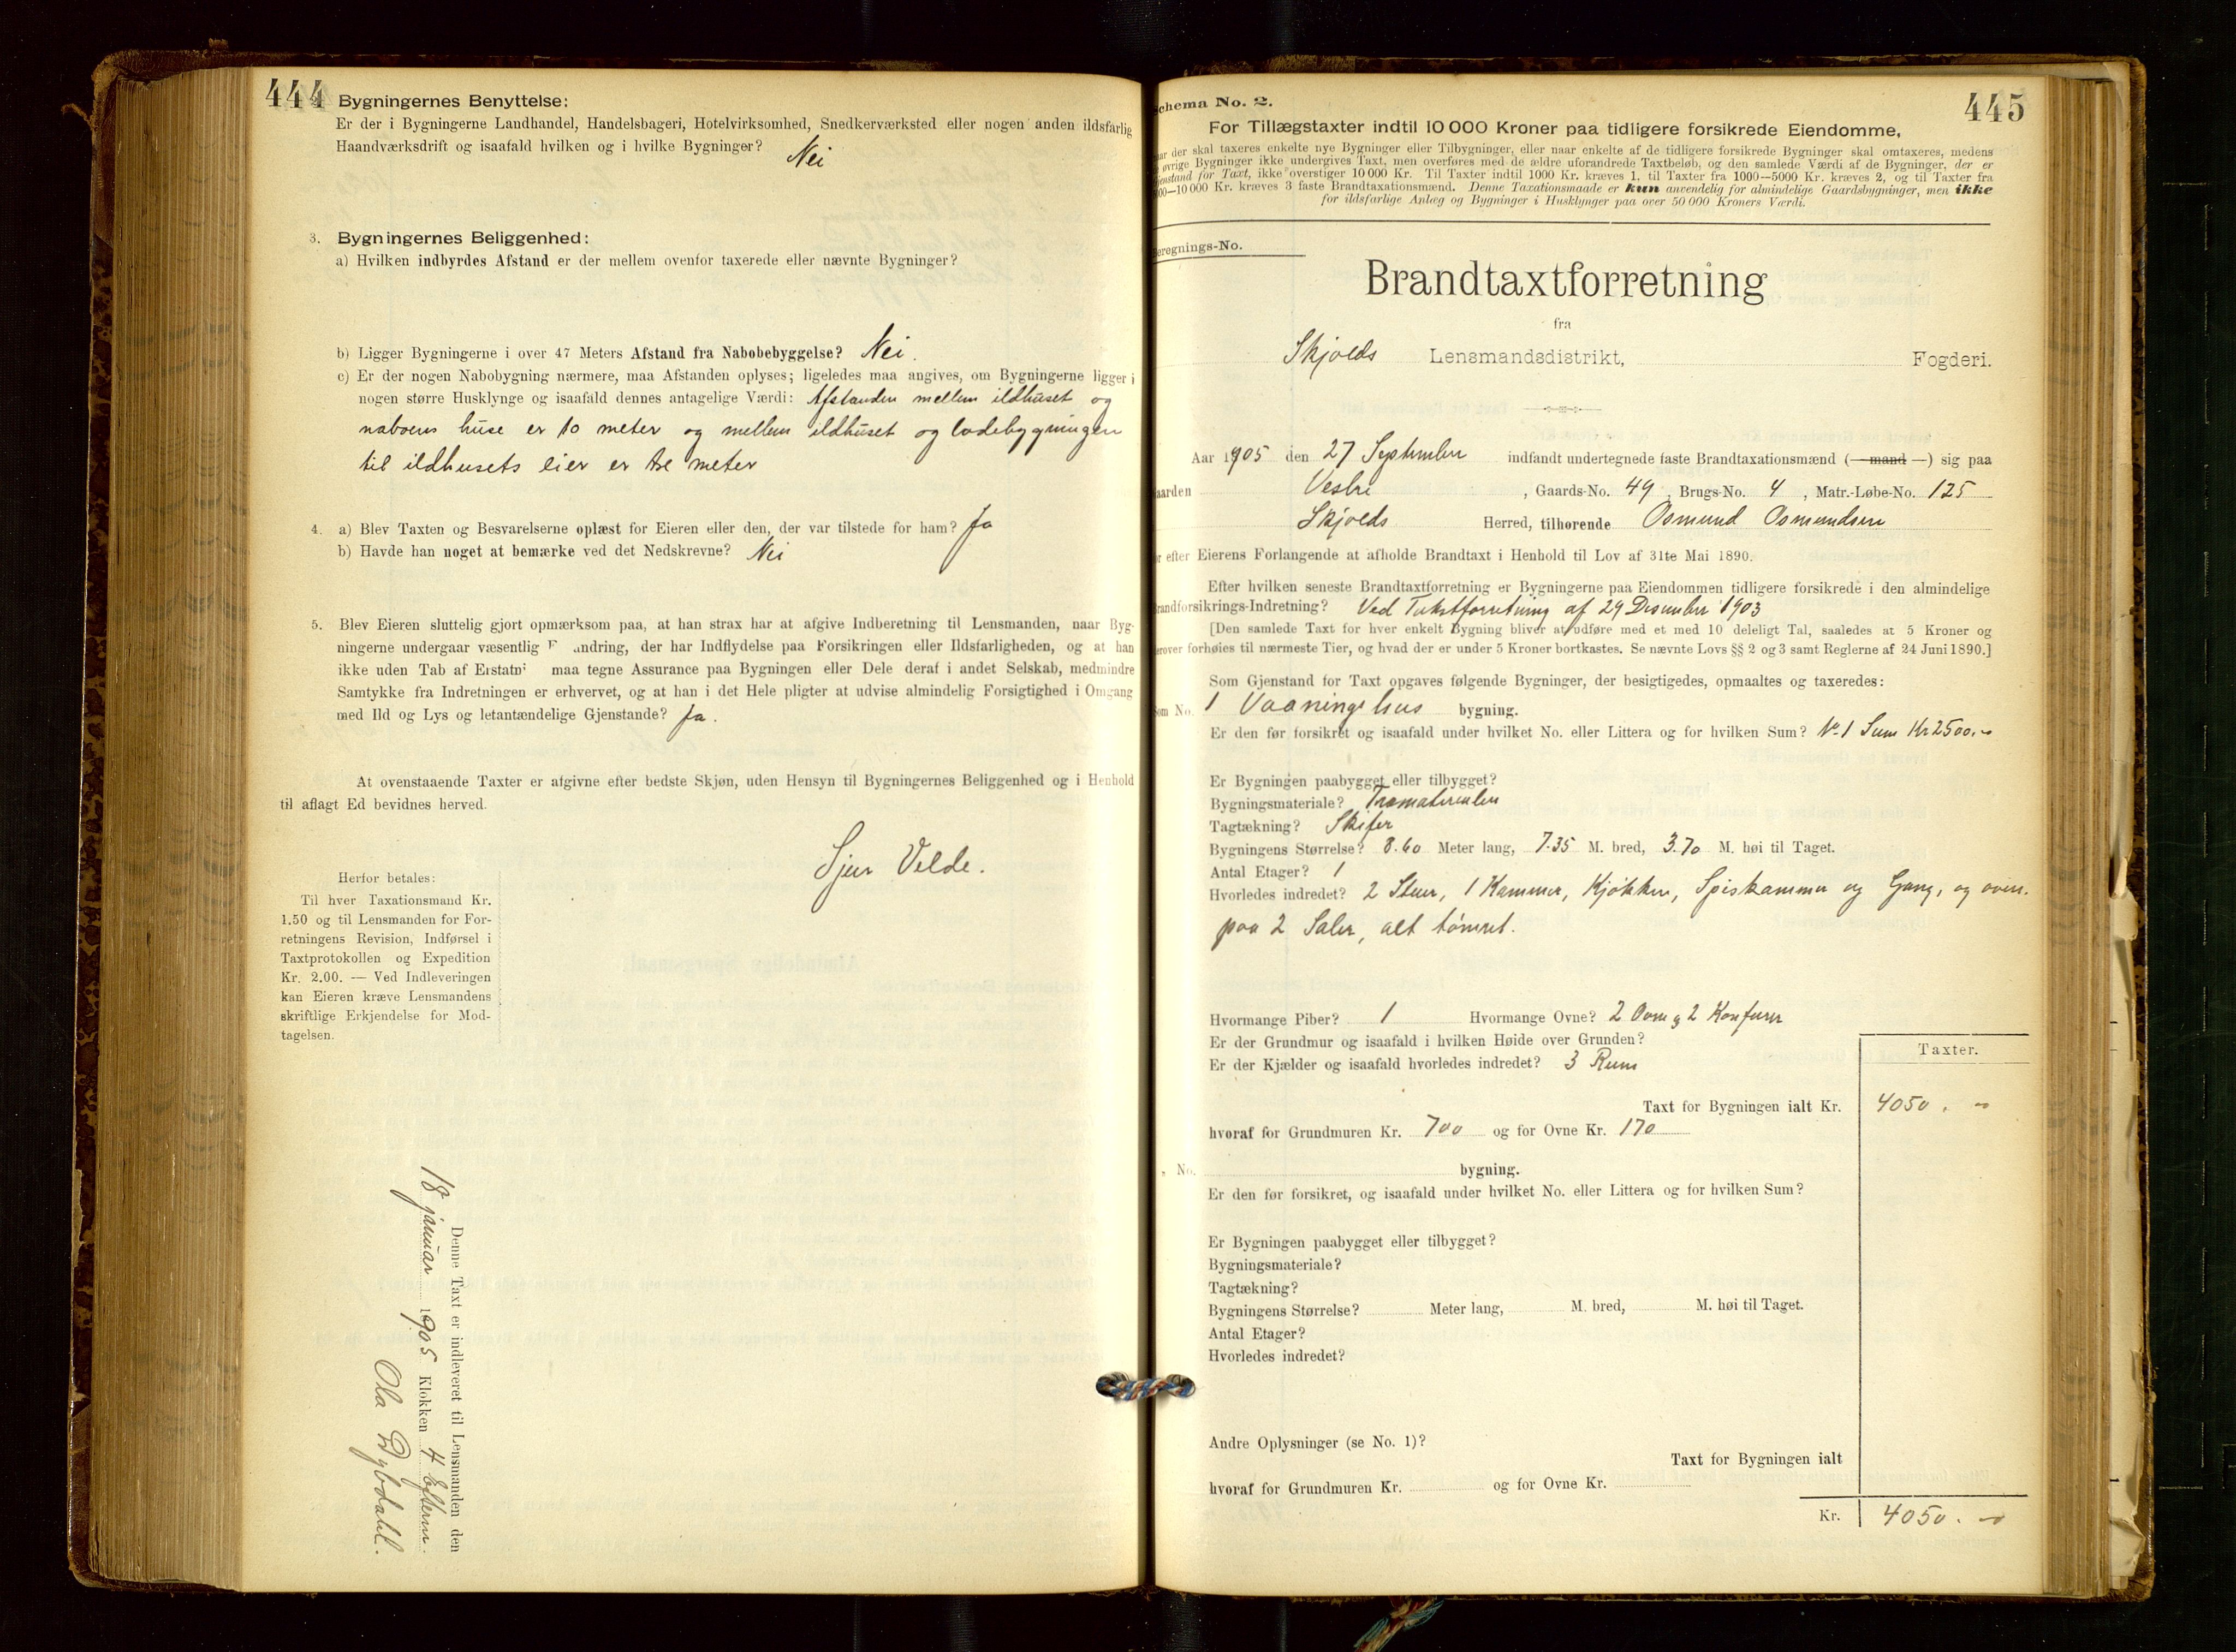 444
Bygningernes Benyttelse:
Er der i Bygningerne Landhandel, Handelsbageri, Hotelvirksomhed, Snedkerværksted eller nogen anden ildsfarlig
Haandværksdrift og isaafald hvilken og i hvilke Bygninger? Nei
3. Bygningernes Beliggenhed:
a) Hvilken indbyrdes Afstand er der mellem ovenfor taxerede eller nævnte Bygninger?
b) Ligger Bygningerne i over 47 Meters Afstand fra Nabobebyggelse? Nei.
c) Er der nogen Nabobygning nærmere, maa Afstanden oplyses; ligeledes maa angives, om Bygningerne ligger i
nogen større Husklynge og isaafald dennes antagelige Værdi: Afstanden mellem ildhuset og
naboens huse er 10 meter og mellem ildhuset og ladebygningen
til ildhusets eier er tre meter
4. a) Blev Taxten og Besvarelserne oplæst for Eieren eller den, der var tilstede for ham? Ja
b) Havde han noget at bemærke ved det Nedskrevne? Nei
5. Blev Eieren sluttelig gjort opmærksom paa, at han strax har at afgive Indberetning til Lensmanden, naar Byg-
ningerne undergaar væsentlig F andring, der har Indflydelse paa Forsikringen eller Ildsfarligheden, og at han
ikke uden Tab af Erstatn maa tegne Assurance paa Bygningen eller Dele deraf i andet Selskab, medmindre
Samtykke fra Indretningen er erhvervet, og at han i det Hele pligter at udvise almindelig Forsigtighed i Omgang
med Ild og Lys og letantændelige Gjenstande? Ja.
At ovenstaaende Taxter er afgivne efter bedste Skjøn, uden Hensyn til Bygningernes Beliggenhed og i Henhold
til aflagt Ed bevidnes herved.
Sjur Velde.
Herfor betales:
Til hver Taxationsmand Kr.
1.50 og til Lensmanden for For-
retningens Revision, Indførsel i
Taxtprotokollen og Expedition
Kr. 2.00. — Ved Indleveringen
kan Eieren kræve Lensmandens
skriftlige Erkjendelse for Mod-
tagelsen.
Denne Taxt er indleveret til Lensmanden den
18 januar 1905 Klokken 4 Efterm.
Ola Dybdahl.
445
chema No. 2.
For Tillægstaxter indtil 10 000 Kroner paa tidligere forsikrede Eiendomme,
ar der skal taxeres enkelte nye Bygninger eller Tilbygninger, eller naar enkelte af de tidligere forsikrede Bygninger skal omtaxeres, medens
øvrige Bygninger ikke undergives Taxt, men overføres med de ældre uforandrede Taxtbeløb, og den samlede Værdi af de Bygninger, der er
enstand for Taxt, ikke overstiger 10 000 Kr. Til Taxter indtil 1000 Kr. kræves 1, til Taxter fra 1000—5000 Kr. kræves 2, og til Taxter fra
00—10 000 Kr. kræves 3 faste Brandtaxationsmænd. Denne Taxationsmaade er kun anvendelig for almindelige Gaardsbygninger, men ikke
for ildsfarlige Anlæg og Bygninger i Husklynger paa over 50 000 Kroners Værdi.
Beregnings-No.
Brandtaxtforretning
fra
Skjolds Lensmandsdistrikt, Fogderi.
Aar 1905 den 27 September indfandt undertegnede faste Brandtaxationsmænd (— mand —) sig paa
aarden Vestre, Gaards-No. 49, Brugs-No. 4, Matr.-Løbe-No. 125
Skjolds Herred, tilhørende Osmund Osmundsen
r efter Eierens Forlangende at afholde Brandtaxt i Henhold til Lov af 31te Mai 1890.
Efter hvilken seneste Brandtaxtforretning er Bygningerne paa Eiendommen tidligere forsikrede i den almindelige
randforsikrings-Indretning? Ved Takstforretning af 29 Desember 1903
[Den samlede Taxt for hver enkelt Bygning bliver at udføre med et med 10 deleligt Tal, saaledes at 5 Kroner og
erover forhøies til nærmeste Tier, og hvad der er under 5 Kroner bortkastes. Se nævnte Lovs §§ 2 og 3 samt Reglerne af 24 Juni 1890.]
Som Gjenstand for Taxt opgaves følgende Bygninger, der besigtigedes, opmaaltes og taxeredes:
om No. 1 Vaaningshus bygning.
Er den før forsikret og isaafald under hvilket No. eller Littera og for hvilken Sum? No 1 Sum Kr 2500.
Er Bygningen paabygget eller tilbygget?
Bygningsmateriale? Træmaterialer
Tagtækning? Skifer
Bygningens Størrelse? 8.60 Meter lang, 7.35 M. bred, 3.70 M. høi til Taget.
Antal Etager? 1
Hvorledes indredet? 2 Stuer, 1 Kammer, Kjøkken, Spiskammer og Gang, og oven-
paa 2 Saler, alt tømret.
Hvormange Piber? 1 Hvormange Ovne? 2 Ovne og 2 Komfurer
Er der Grundmur og isaafald i hvilken Høide over Grunden?
Er der Kjælder og isaafald hvorledes indredet? 3 Rum
Taxter.
Taxt for Bygningen ialt Kr. 4050.
hvoraf for Grundmuren Kr. 700 og for Ovne Kr. 170
„ No. bygning.
Er den før forsikret, og isaafald under hvilket No. eller Littera og for hvilken Sum?
Er Bygningen paabygget eller tilbygget?
Bygningsmateriale?
Tagtækning?
Bygningens Størrelse? Meter lang, M. bred, M. høi til Taget.
Antal Etager?
Hvorledes indredet?
Andre Oplysninger (se No. 1)?
Taxt for Bygningen ialt
hvoraf for Grundmuren Kr. og for Ovne Kr.
Kr. 4050.